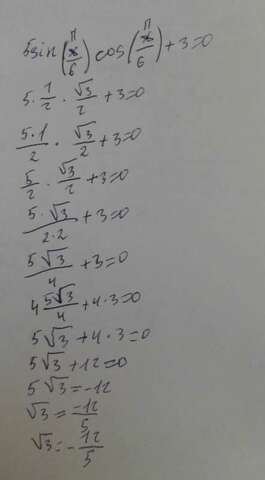 5sin(π/6) cos(π/6)+3=0
5·1/2·√3/2+3=0
5·1/2·√3/2+3=0
5/2·√3/2+3=0
5·√3/2·2+3=0
5√3/4+3=0
4 5√3/4+4·3=0
5√3+4·3=0
5√3+12=0
5√3=-12
√3=-12/5
√3=-12/5